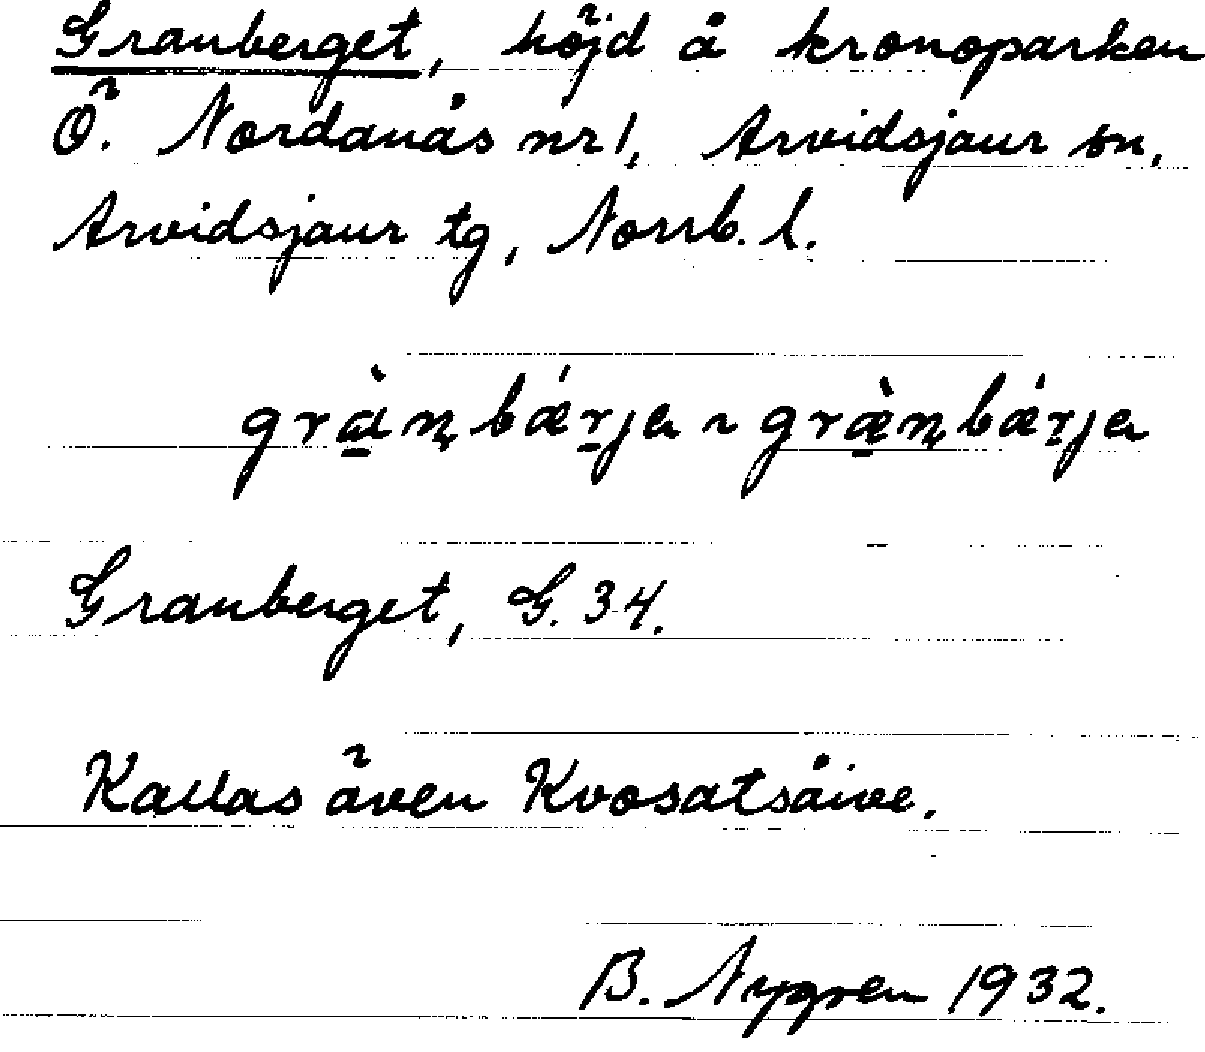 Granberget, höjd å kronoparken
Ö. Nordanås nr 1, Arvidsjaur sn,
Arvidsjaur tg, Norrb. l.
grà̱ṇbǽṟja ~ græ̱̀ṇbǽṟja
Granberget, G. 34.
Kallas även Kvosatsåive.
B. Nygren 1932.